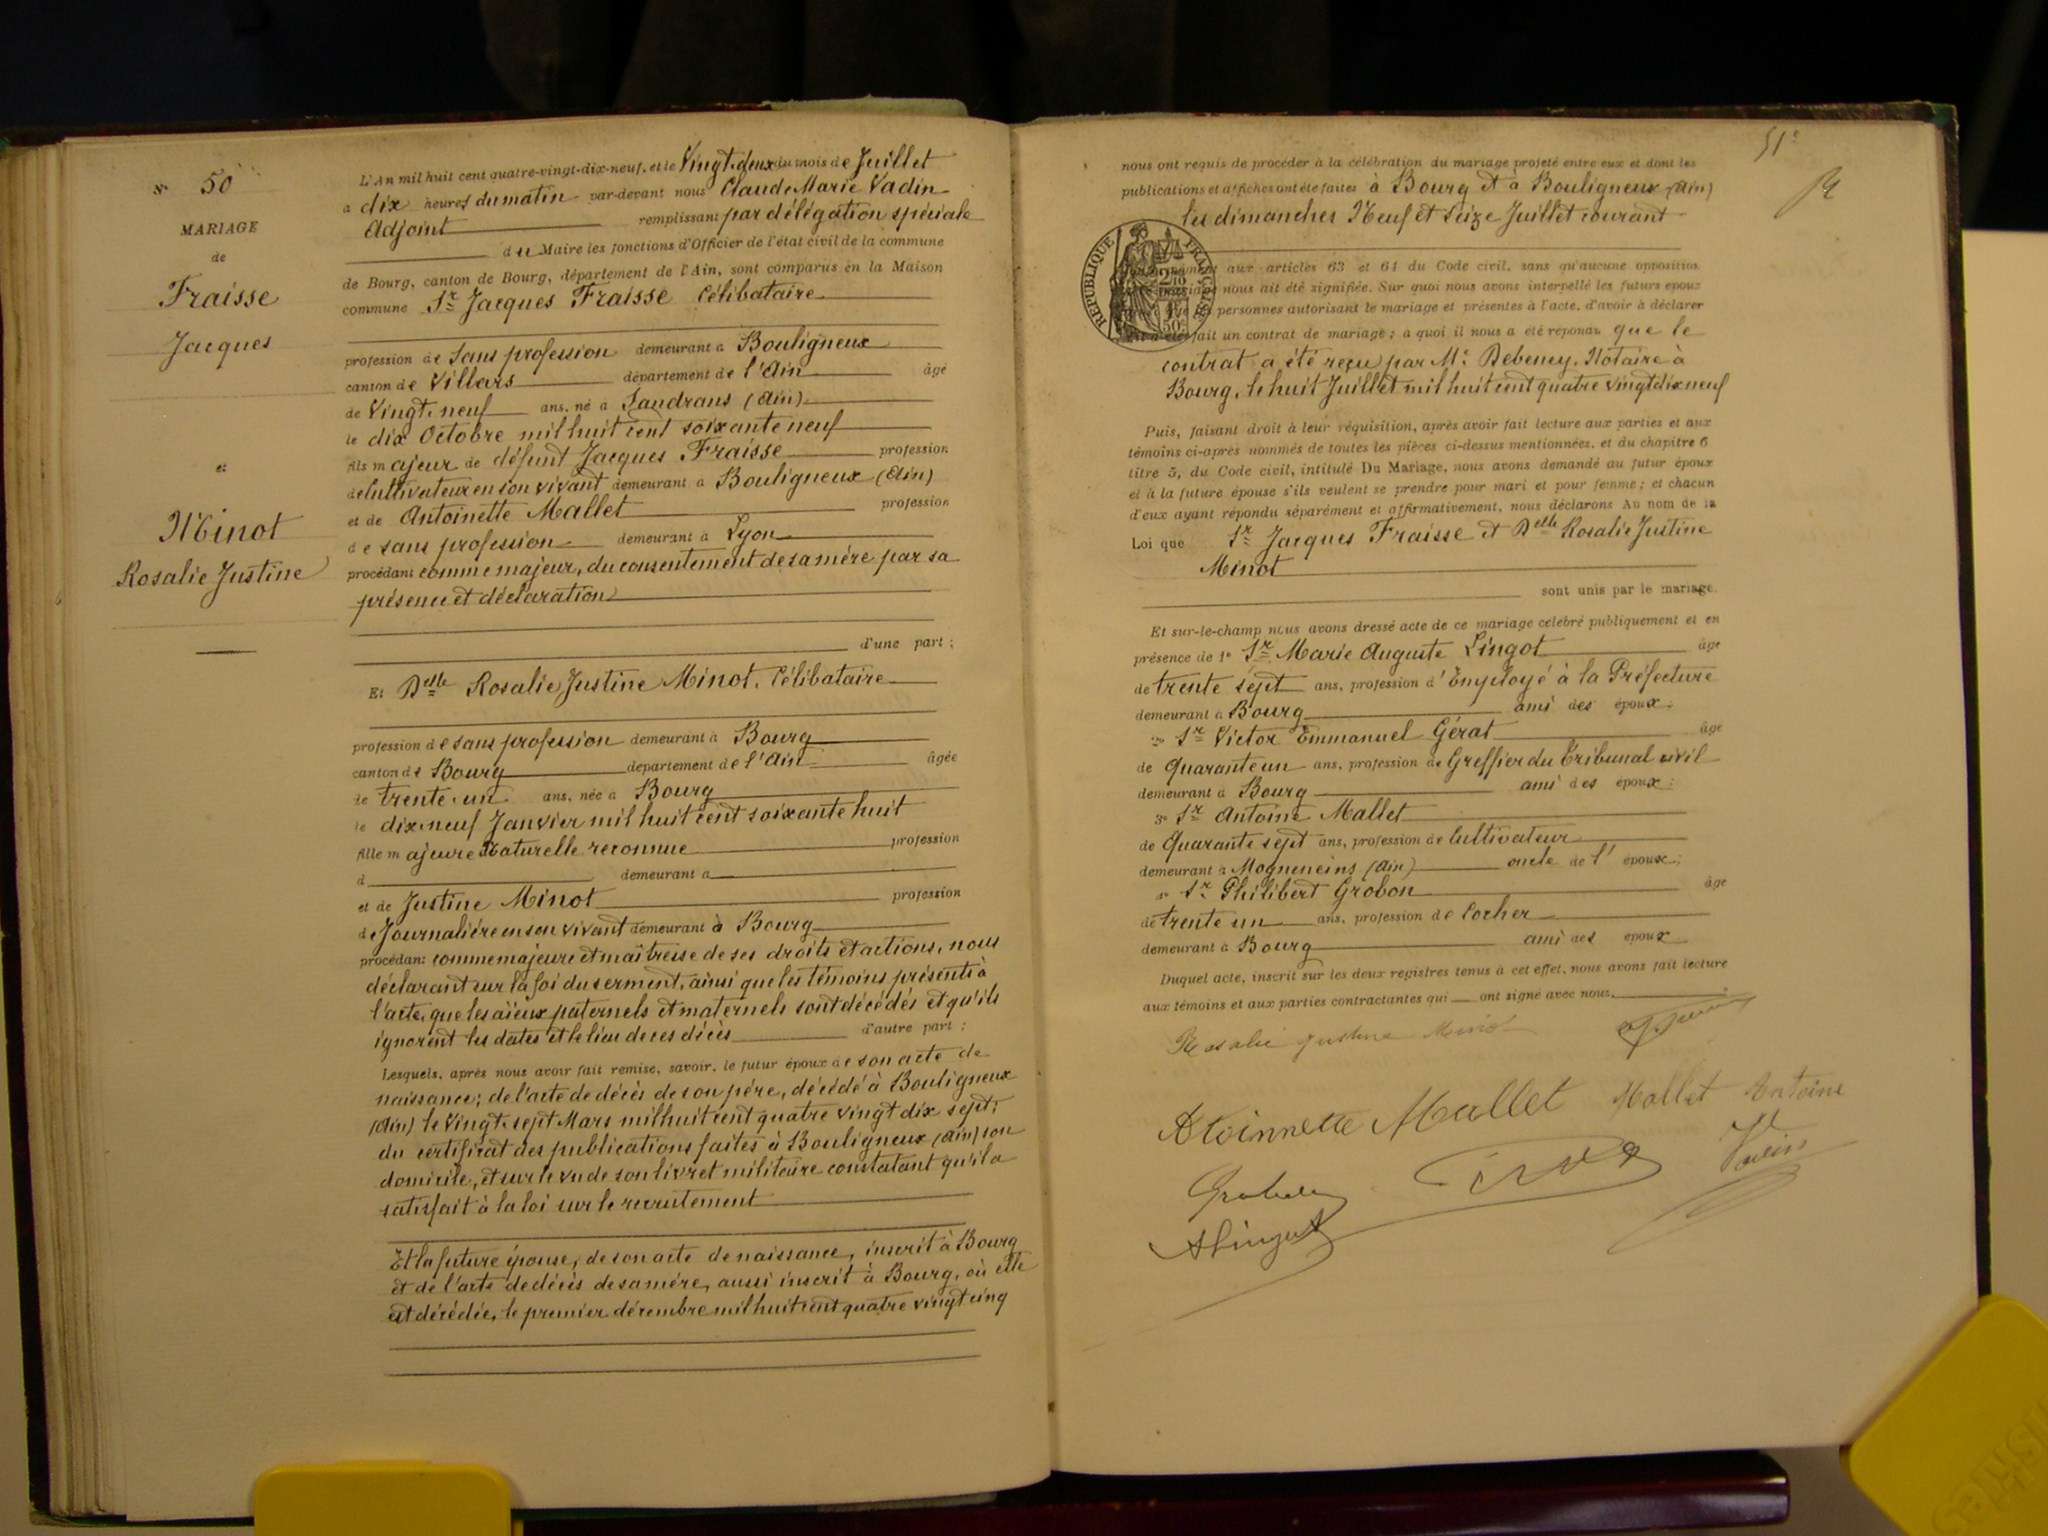 N° 50
MARIAGE
de
Fraisse
Jacques
et
Minot
Rosalie Justine
L'An mil huit cent quatre-vingt-dix-neuf, et le Vingt-deux du mois de Juillet
à dix heures du matin par-devant nous Claude Marie Vadin
Adjoint remplissant par délégation spéciale
du Maire les fonctions d'Officier de l'état civil de la commune
de Bourg, canton de Bourg, département de l'Ain, sont comparus en la Maison
commune Sr Jacques Fraisse Célibataire
profession de Sans profession demeurant à Bouligneux
canton de Villars département de l'Ain âgé
de Vingt-neuf ans, né à Sandrans (Ain)
le dix Octobre mil huit cent soixante neuf
fils majeur de défunt Jacques Fraisse profession
de Cultivateur en son vivant demeurant à Bouligneux (Ain)
et de Antoinette Mallet profession
de sans profession demeurant à Lyon
procédant comme majeur, du consentement de sa mère par sa
présence et déclaration
d'une part ;
Et Delle Rosalie Justine Minot, Célibataire
profession de sans profession demeurant à Bourg
canton de Bourg département de l'Ain âgée
de trente-un ans, née à Bourg
le dix-neuf Janvier mil huit cent soixante huit
fille majeure Naturelle reconnue profession
d demeurant à
et de Justine Minot profession
d Journalière en son vivant demeurant à Bourg
procédant comme majeure et maîtresse de ses droits et actions, nous
déclarant sur la foi du serment, ainsi que les témoins présents à
l'acte, que les aïeux paternels et maternels sont décédés et qu'ils
ignorent les dates et le lieu de ces décès d'autre part ;
Lesquels, après nous avoir fait remise, savoir, le futur époux de son acte de
naissance; de l'acte de décès de son père, décédé à Bouligneux
(Ain) le Vingt-sept Mars mil huit cent quatre vingt dix sept;
du certificat des publications faites à Bouligneux (Ain) son
domicile, et sur le vu de son livret militaire constatant qu'il a
satisfait à la loi sur le recrutement
Et la future épouse, de son acte de naissance, inscrit à Bourg
et de l'acte de décès de sa mère, aussi inscrit à Bourg, où elle
est décédée, le premier décembre mil huit cent quatre vingt cinq
51
nous ont requis de procéder à la célébration du mariage projeté entre eux et dont les
publications et affiches ont été faites à Bourg et à Bouligneux (Ain)
les dimanches Neuf et Seize Juillet courant
RÉPUBLIQUE FRANÇAISE
aux articles 63 et 64 du Code civil, sans qu'aucune opposition
nous ait été signifiée. Sur quoi nous avons interpellé les futurs époux
personnes autorisant le mariage et présentes à l'acte, d'avoir à déclarer
fait un contrat de mariage ; à quoi il nous a été répondu que le
contrat a été reçu par Me Debeney, Notaire à
Bourg, le huit Juillet mil huit cent quatre vingt dix neuf
Puis, faisant droit à leur réquisition, après avoir fait lecture aux parties et aux
témoins ci-après nommés de toutes les pièces ci-dessus mentionnées, et du chapitre 6
titre 5, du Code civil, intitulé Du Mariage, nous avons demandé au futur époux
et à la future épouse s'ils veulent se prendre pour mari et pour femme ; et chacun
d'eux ayant répondu séparément et affirmativement, nous déclarons Au nom de la
Loi que Sr Jacques Fraisse et Delle Rosalie Justine
Minot
sont unis par le mariage.
Et sur-le-champ nous avons dressé acte de ce mariage célébré publiquement et en
présence de 1° Sr Marie Auguste Lingot âgé
de trente sept ans, profession d'Employé à la Préfecture
demeurant à Bourg ami des époux ;
2° Sr Victor Emmanuel Gérat âgé
de Quarante un ans, profession de Greffier du Tribunal civil
demeurant à Bourg ami des époux ;
3° Sr Antoine Mallet
de Quarante sept ans, profession de Cultivateur
demeurant à Mogneneins (Ain) oncle de l'époux ;
4° Sr Philibert Grobon âgé
de trente un ans, profession de Cocher
demeurant à Bourg ami des époux
Duquel acte, inscrit sur les deux registres tenus à cet effet, nous avons fait lecture
aux témoins et aux parties contractantes qui ont signé avec nous.
Rosalie Justine Minot
Atoinnette Mallet Mallet Antoine
Vadin
Grobon
ALingot